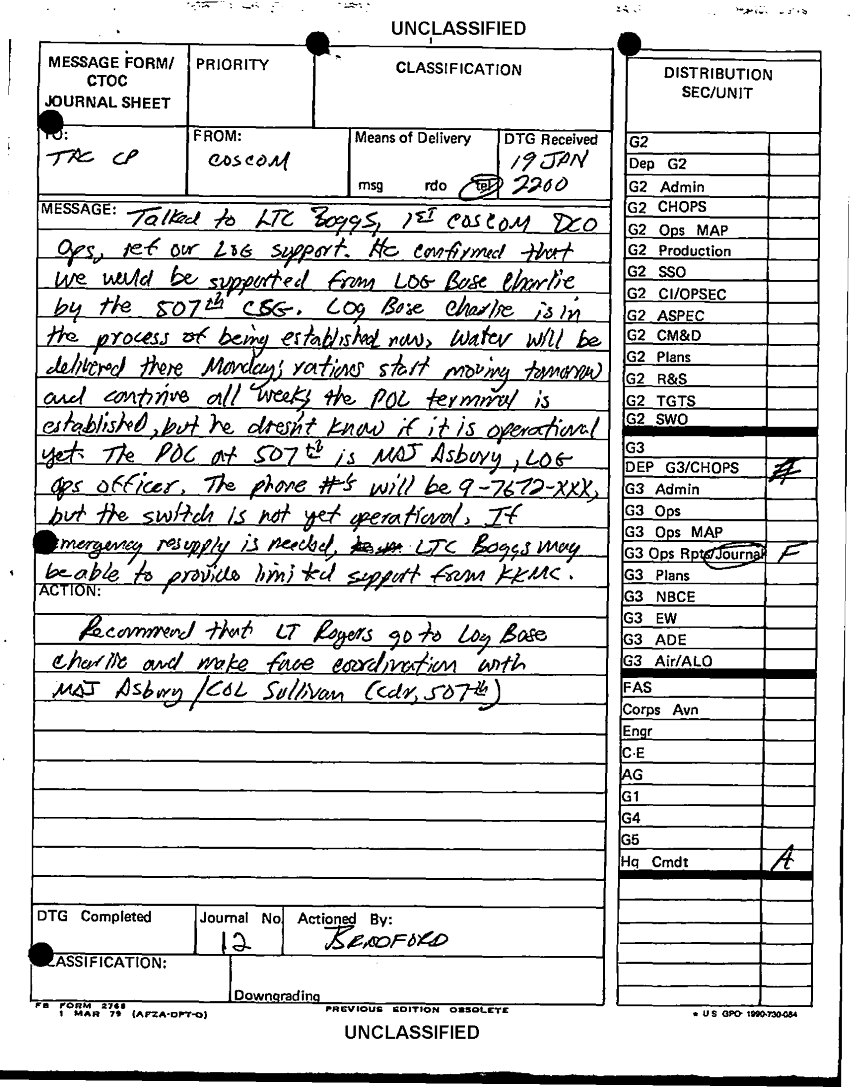 UNCLASSIFIED
MESSAGE FORM/
CTOC
JOURNAL SHEET
PRIORITY
CLASSIFICATION
TO:
TAC CP
FROM:
COSCOM
Means of Delivery
msg rdo tel
DTG Received
19 JAN
2200
MESSAGE: Talked to LTC Boggs, 1ST COSCOM DCO
Ops, ref our LOG support. He confirmed that
we would be supported from LOG Base Charlie
by the 507th CSG. Log Base Charlie is in
the process of being established now, Water will be
delivered there Monday; rations start moving tomorrow
and continue all week; the POL terminal is
established, but he doesn't know if it is operational
yet. The POC at 507th is MAJ Asbury, LOG
Ops officer. The phone #'s will be 9-7672-XXX,
but the switch is not yet operational. If
emergency resupply is needed, LTC Boggs may
be able to provide limited support from KKMC.
ACTION:
Recommend that LT Rogers go to Log Base
Charlie and make face coordination with
MAJ Asbury/COL Sullivan (cdr, 507th)
DTG Completed
Journal No.
12
Actioned By:
BRADFORD
CLASSIFICATION:
Downgrading
FB FORM 2768
1 MAR 79 (AFZA-DPT-O)
PREVIOUS EDITION OBSOLETE
DISTRIBUTION
SEC/UNIT
G2
Dep G2
G2 Admin
G2 CHOPS
G2 Ops MAP
G2 Production
G2 SSO
G2 CI/OPSEC
G2 ASPEC
G2 CM&D
G2 Plans
G2 R&S
G2 TGTS
G2 SWO
G3
DEP G3/CHOPS
G3 Admin
G3 Ops
G3 Ops MAP
G3 Ops Rpts/Journal F
G3 Plans
G3 NBCE
G3 EW
G3 ADE
G3 Air/ALO
FAS
Corps Avn
Engr
C-E
AG
G1
G4
G5
Hq Cmdt A
* U S GPO- 1990-730-084
UNCLASSIFIED